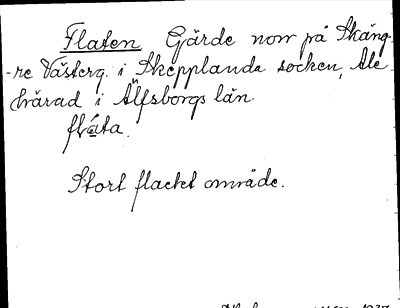 Flaten Gärde norr på Skäng-
-re Västerg. i Skepplanda socken, Ale
härad i Älfsborgs län
flata.
Stort flackt område.